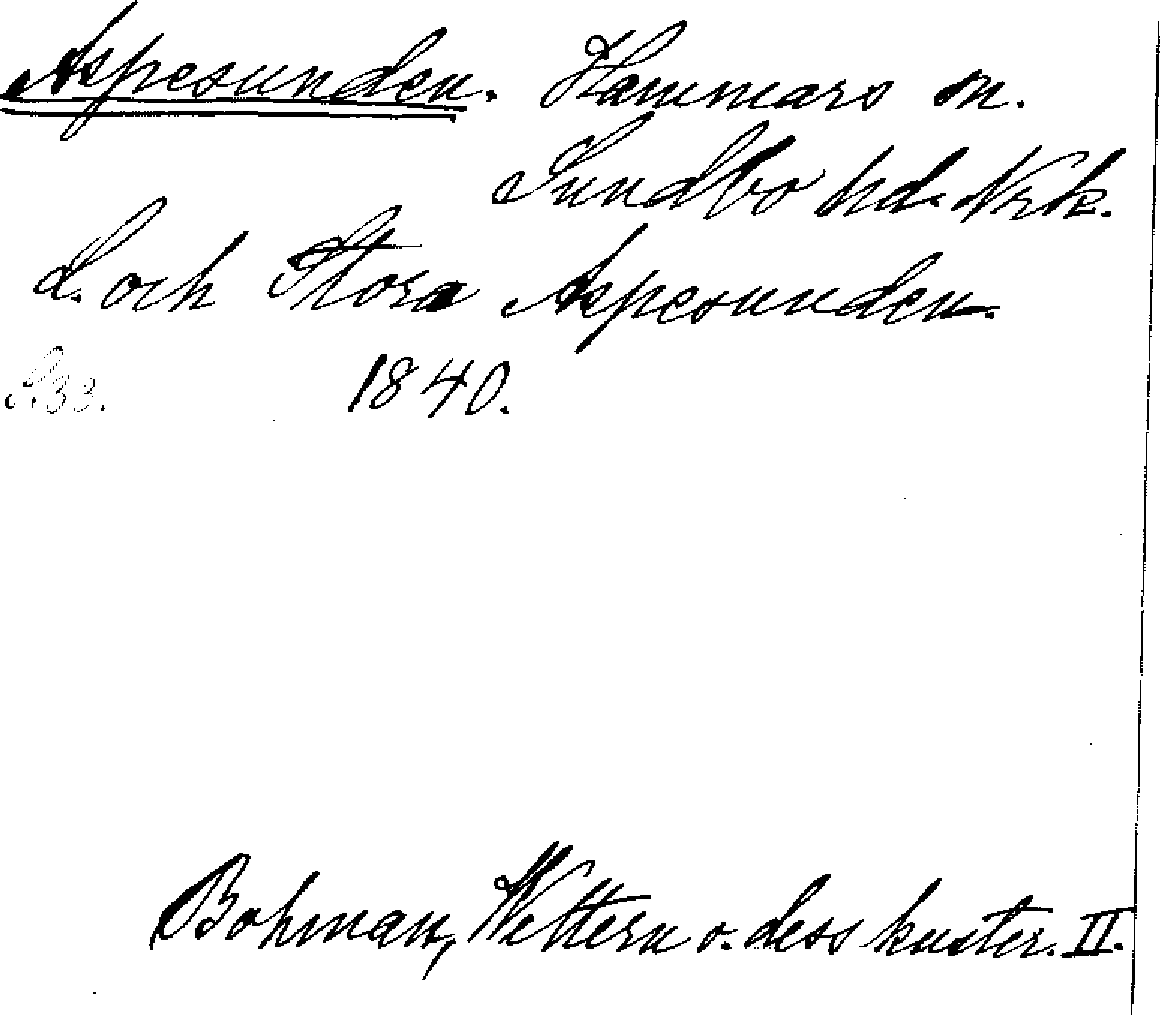 Aspesunden. Hammars sn.
Sundbo hd. Nrk.
L. och Stora Aspesunden.
S. 33. 1840.
Bohman, Wettern o. dess kuster. II.